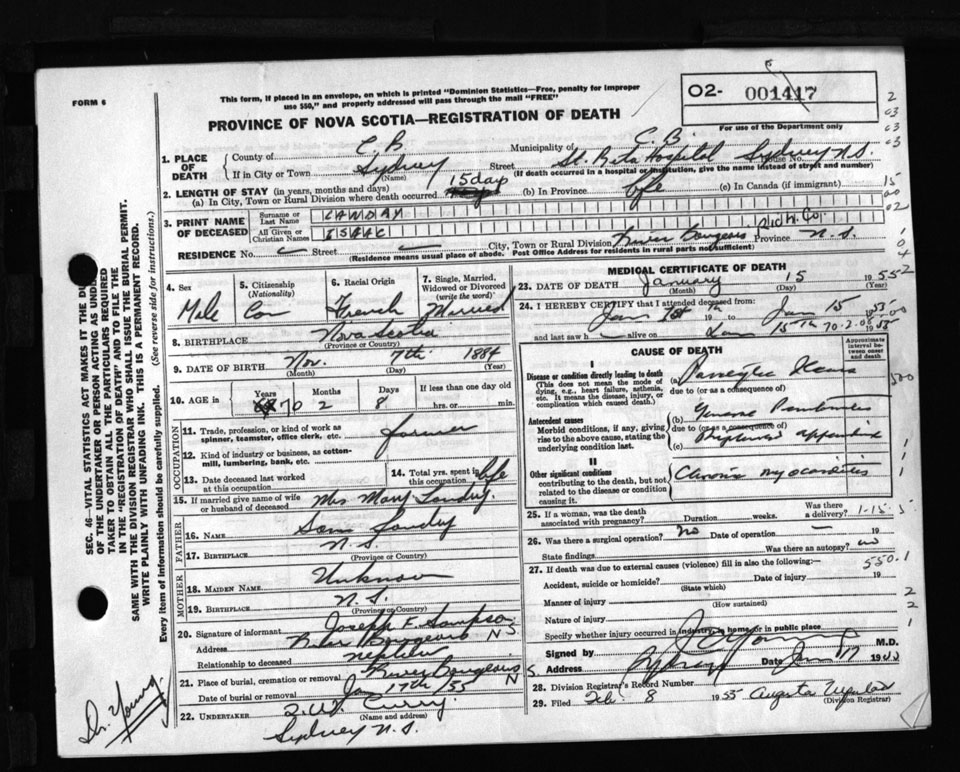 FORM 6
This form, if placed in an envelope, on which is printed "Dominion Statistics—Free, penalty for improper
use $50," and properly addressed will pass through the mail "FREE"
O2- 001417
PROVINCE OF NOVA SCOTIA—REGISTRATION OF DEATH
For use of the Department only
1. PLACE OF DEATH
County of C B Municipality of C. B.
If in City or Town Sydney (Name) Street St. Rita Hospital Sydney N.S. House No.
(If death occurred in a hospital or institution, give the name instead of street and number)
2. LENGTH OF STAY (in years, months and days)
(a) In City, Town or Rural Division where death occurred 15 day (b) In Province life (c) In Canada (if immigrant)
3. PRINT NAME OF DECEASED
Surname or Last Name LANDRY
All Given or Christian Names ISAAC
Rich. Co.
RESIDENCE No. Street City, Town or Rural Division River Bourgeois Province N.S.
(Residence means usual place of abode. Post Office Address for residents in rural parts not sufficient)
4. Sex Male
5. Citizenship (Nationality) Can
6. Racial Origin French
7. Single, Married, Widowed or Divorced (write the word) Married
8. BIRTHPLACE Nova Scotia (Province or Country)
9. DATE OF BIRTH Nov. (Month) 7th (Day) 1884 (Year)
10. AGE in Years 70 Months 2 Days 8 If less than one day old hrs. or min.
OCCUPATION
11. Trade, profession, or kind of work as spinner, teamster, office clerk, etc. farmer
12. Kind of industry or business, as cotton-mill, lumbering, bank, etc.
13. Date deceased last worked at this occupation
14. Total yrs. spent in this occupation life
15. If married give name of wife or husband of deceased Mrs Mary Landry
FATHER
16. NAME Sam Landry
17. BIRTHPLACE N.S. (Province or Country)
MOTHER
18. MAIDEN NAME Unknown
19. BIRTHPLACE N.S. (Province or Country)
20. Signature of informant Joseph F. Sampson
Address River Bourgeois N S
Relationship to deceased nephew
21. Place of burial, cremation or removal River Bourgeois N S.
Date of burial or removal Jan 17th /55
22. UNDERTAKER Curry
(Name and address)
Sydney N.S.
MEDICAL CERTIFICATE OF DEATH
23. DATE OF DEATH January (Month) 15 (Day) 1955 (Year)
24. I HEREBY CERTIFY that I attended deceased from:
Jan 1st 19 to Jan 15 1955
and last saw h alive on Jan 15th 1955
CAUSE OF DEATH
Approximate interval between onset and death
I
Disease or condition directly leading to death
(This does not mean the mode of dying, e.g., heart failure, asthenia, etc. It means the disease, injury, or complication which caused death.)
(a)
due to (or as a consequence of)
Antecedent causes
Morbid conditions, if any, giving rise to the above cause, stating the underlying condition last.
(b) General Peritonitis
due to (or as a consequence of)
(c) Ruptured appendix
II
Other significant conditions
contributing to the death, but not related to the disease or condition causing it.
Chronic myocarditis
25. If a woman, was the death associated with pregnancy? Duration weeks. Was there a delivery?
26. Was there a surgical operation? no Date of operation 19
State findings Was there an autopsy? no
27. If death was due to external causes (violence) fill in also the following:
Accident, suicide or homicide? Date of injury 19
(State which)
Manner of injury
(How sustained)
Nature of injury
Specify whether injury occurred in industry, in home, or in public place
Signed by Young M.D.
Address Sydney Date Jan 17 19
28. Division Registrar's Record Number
29. Filed Feb. 8 1955 Augusta
(Division Registrar)
SEC. 46—VITAL STATISTICS ACT MAKES IT THE DUTY
OF THE UNDERTAKER OR PERSON ACTING AS UNDERTAKER
TO OBTAIN ALL THE PARTICULARS REQUIRED
IN THE "REGISTRATION OF DEATH" AND TO FILE THE
SAME WITH THE DIVISION REGISTRAR WHO SHALL ISSUE THE BURIAL PERMIT.
WRITE PLAINLY WITH UNFADING INK. THIS IS A PERMANENT RECORD.
Every item of information should be carefully supplied. (See reverse side for instructions.)
Dr. Young